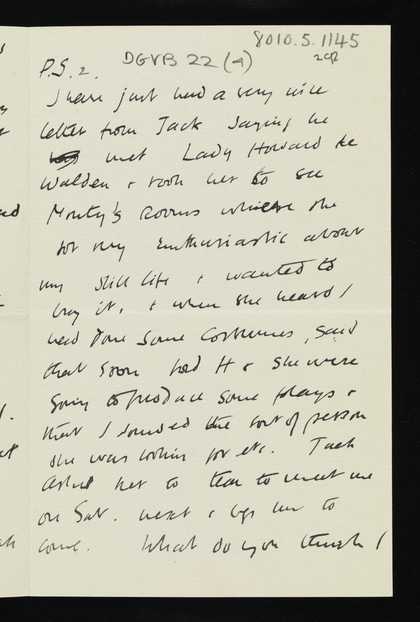 8010.5.1145
P.S. 2. DGVB 22 (4)
I have just had a very nice
letter from Jack saying he
met Lady Howard de
Walden & took her to see
Monty's rooms where she
got very enthusiastic about
my still life & wanted to
buy it, & when she heard I
had done some costumes, said
that soon Lord H & she were
going to produce some plays &
that I sounded the sort of person
she was looking for etc. Jack
asked her to tea to meet me
on Sat. next & begs me to
come. What do you think I